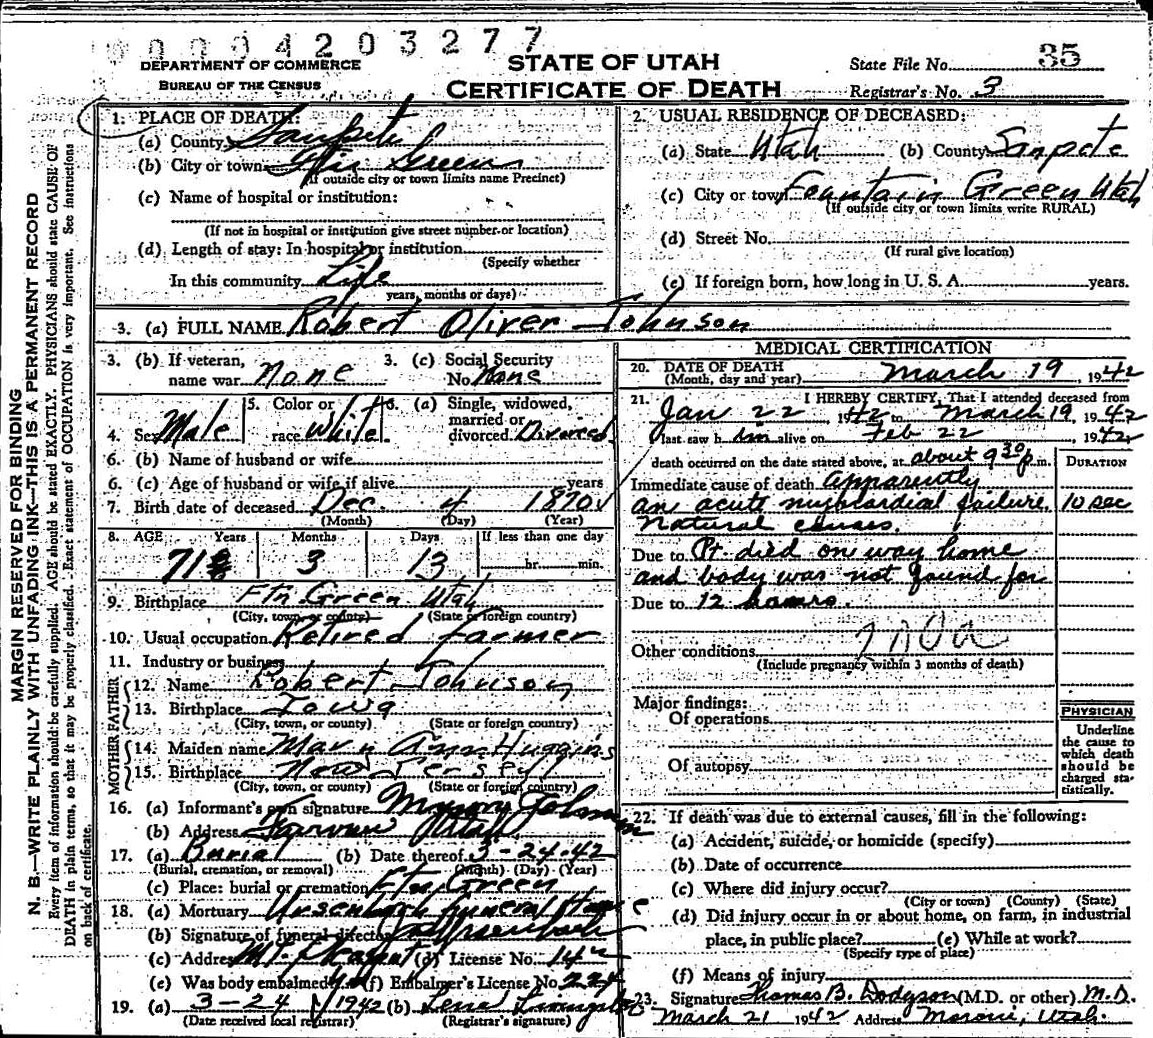 0004203277
DEPARTMENT OF COMMERCE
BUREAU OF THE CENSUS
STATE OF UTAH
CERTIFICATE OF DEATH
State File No. 35
Registrar's No. 3
MARGIN RESERVED FOR BINDING
N. B.—WRITE PLAINLY WITH UNFADING INK—THIS IS A PERMANENT RECORD
Every item of information should be carefully supplied. AGE should be stated EXACTLY. PHYSICIANS should state CAUSE OF
DEATH in plain terms, so that it may be properly classified. Exact statement of OCCUPATION is very important. See instructions
on back of certificate.
1. PLACE OF DEATH:
(a) County Sanpete
(b) City or town Green
(If outside city or town limits name Precinct)
(c) Name of hospital or institution:
(If not in hospital or institution give street number or location)
(d) Length of stay: In hospital or institution
(Specify whether
In this community Life
years, months or days)
2. USUAL RESIDENCE OF DECEASED:
(a) State Utah (b) County Sanpete
(c) City or town Fountain Green Utah
(If outside city or town limits write RURAL)
(d) Street No.
(If rural give location)
(e) If foreign born, how long in U. S. A. years.
3. (a) FULL NAME Robert Oliver Johnson
3. (b) If veteran, name war None
3. (c) Social Security No. None
4. Sex Male
5. Color or race White
6. (a) Single, widowed, married or divorced Divorced
6. (b) Name of husband or wife
6. (c) Age of husband or wife if alive years
7. Birth date of deceased Dec. 4 1870
(Month) (Day) (Year)
8. AGE Years Months Days If less than one day
71 3 13 hr. min.
9. Birthplace Ftn Green Utah
(City, town, or county) (State or foreign country)
10. Usual occupation Retired farmer
11. Industry or business
FATHER
12. Name Robert Johnson
13. Birthplace Iowa
(City, town, or county) (State or foreign country)
MOTHER
14. Maiden name Mary Ann Huggins
15. Birthplace New Jersey
(City, town, or county) (State or foreign country)
16. (a) Informant's own signature
(b) Address Utah
17. (a) Burial (b) Date thereof 3-24-42
(Burial, cremation, or removal) (Month) (Day) (Year)
(c) Place: burial or cremation Ftn. Green
18. (a) Mortuary Ursenbach Funeral Home
(b) Signature of funeral director Ursenbach
(c) Address Mt. Pleasant (d) License No. 142
(e) Was body embalmed (f) Embalmer's License No. 224
19. (a) 3-24 1942 (b) Lena
(Date received local registrar) (Registrar's signature)
MEDICAL CERTIFICATION
20. DATE OF DEATH
(Month, day and year) March 19, 1942
21. I HEREBY CERTIFY, That I attended deceased from
Jan 22, 1942 to March 19, 1942
last saw him alive on Feb 22, 1942
death occurred on the date stated above, at about 9 30 p.m.
DURATION
Immediate cause of death apparently
an acute myocardial failure, 10 sec
Natural causes.
Due to Pt died on way home
and body was not found for
Due to 12 hours.
Other conditions
(Include pregnancy within 3 months of death)
Major findings:
Of operations
Of autopsy
PHYSICIAN
Underline
the cause to
which death
should be
charged sta-
tistically.
22. If death was due to external causes, fill in the following:
(a) Accident, suicide, or homicide (specify)
(b) Date of occurrence
(c) Where did injury occur?
(City or town) (County) (State)
(d) Did injury occur in or about home, on farm, in industrial
place, in public place? (e) While at work?
(Specify type of place)
(f) Means of injury
23. Signature Thomas B. Dodgson (M.D. or other) M.D.
March 21 1942 Address Moroni, Utah.